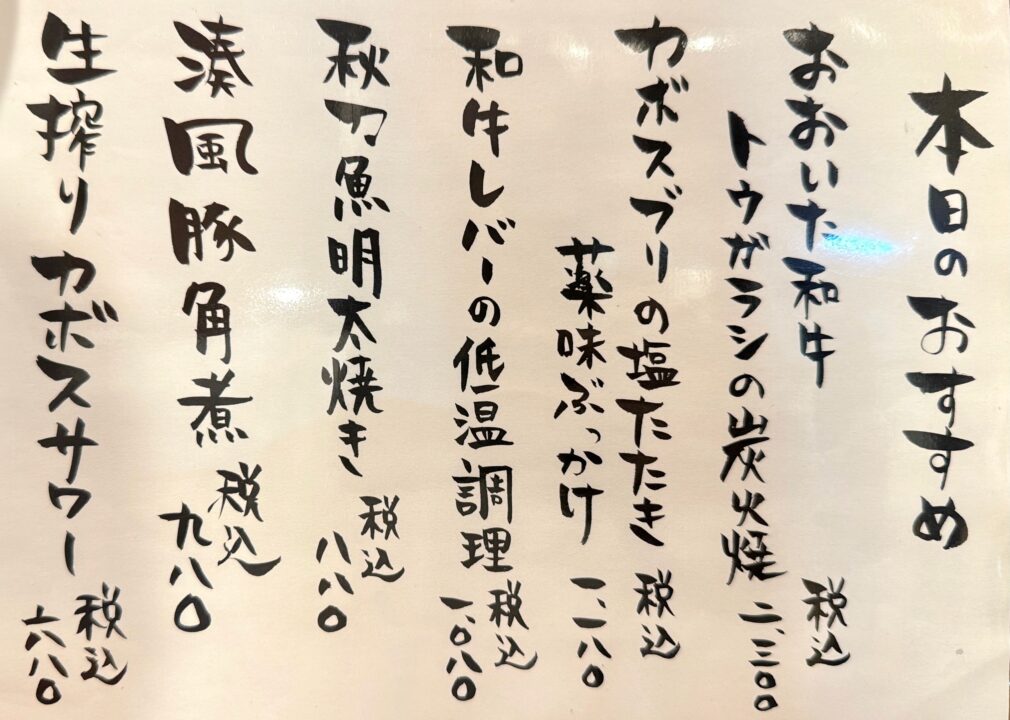 本日のおすすめ
おおいた和牛
トウガラシの炭火焼
税込
二、三〇〇
カボスブリの塩たたき
薬味ぶっかけ
税込
一、一八〇
和牛レバーの低温調理
税込
一、〇八〇
秋刀魚明太焼き
税込
八八〇
湊風豚角煮
税込
九八〇
生搾りカボスサワー
税込
六八〇